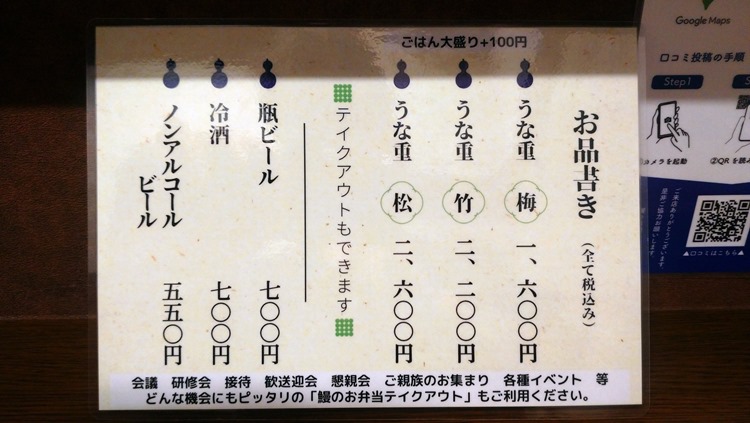 ごはん大盛り+100円
お品書き(全て税込み)
うな重 梅 一、六〇〇円
うな重 竹 二、二〇〇円
うな重 松 二、六〇〇円
テイクアウトもできます
瓶ビール 七〇〇円
冷酒 七〇〇円
ノンアルコール
ビール 五五〇円
会議 研修会 接待 歓送迎会 懇親会 ご親族のお集まり 各種イベント 等
どんな機会にもピッタリの「鰻のお弁当テイクアウト」もご利用ください。
Google Maps
口コミ投稿の手順
Step1
カメラを起動
②QRを読み
ご来店ありがとうございます
是非ご協力お願いします
▲口コミはこちら▲